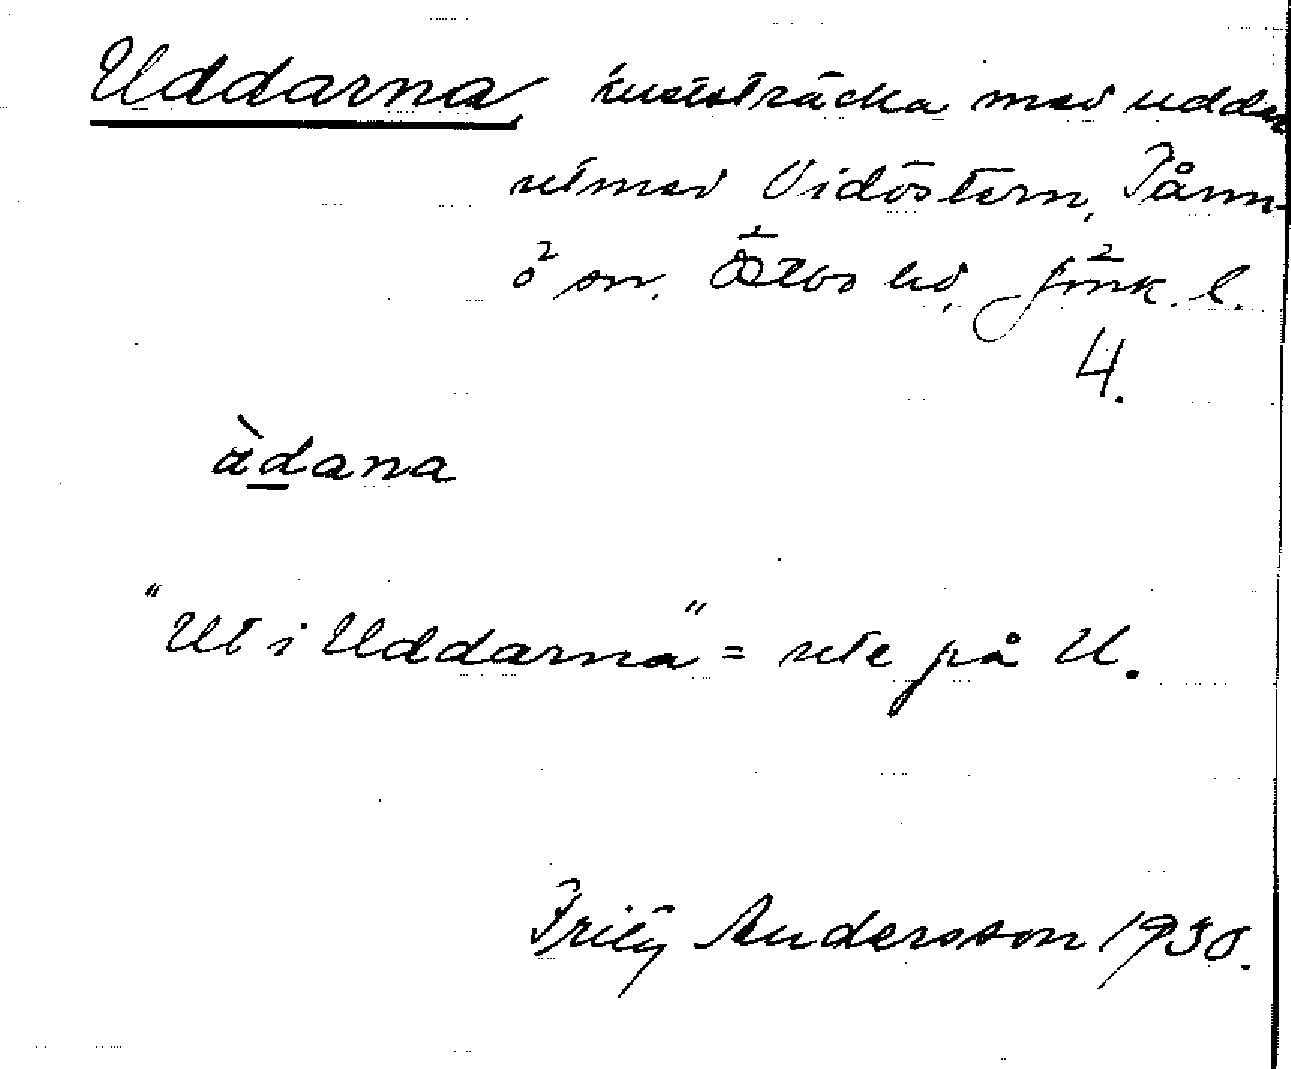 Uddarna, kuststräcka med uddar
utmed Vidöstern, Tånn-
ö sn, Östbo hd, Jönk. l.
4.
àdana
"Ut i Uddarna" = ute på U.
Fritz Andersson 1930.